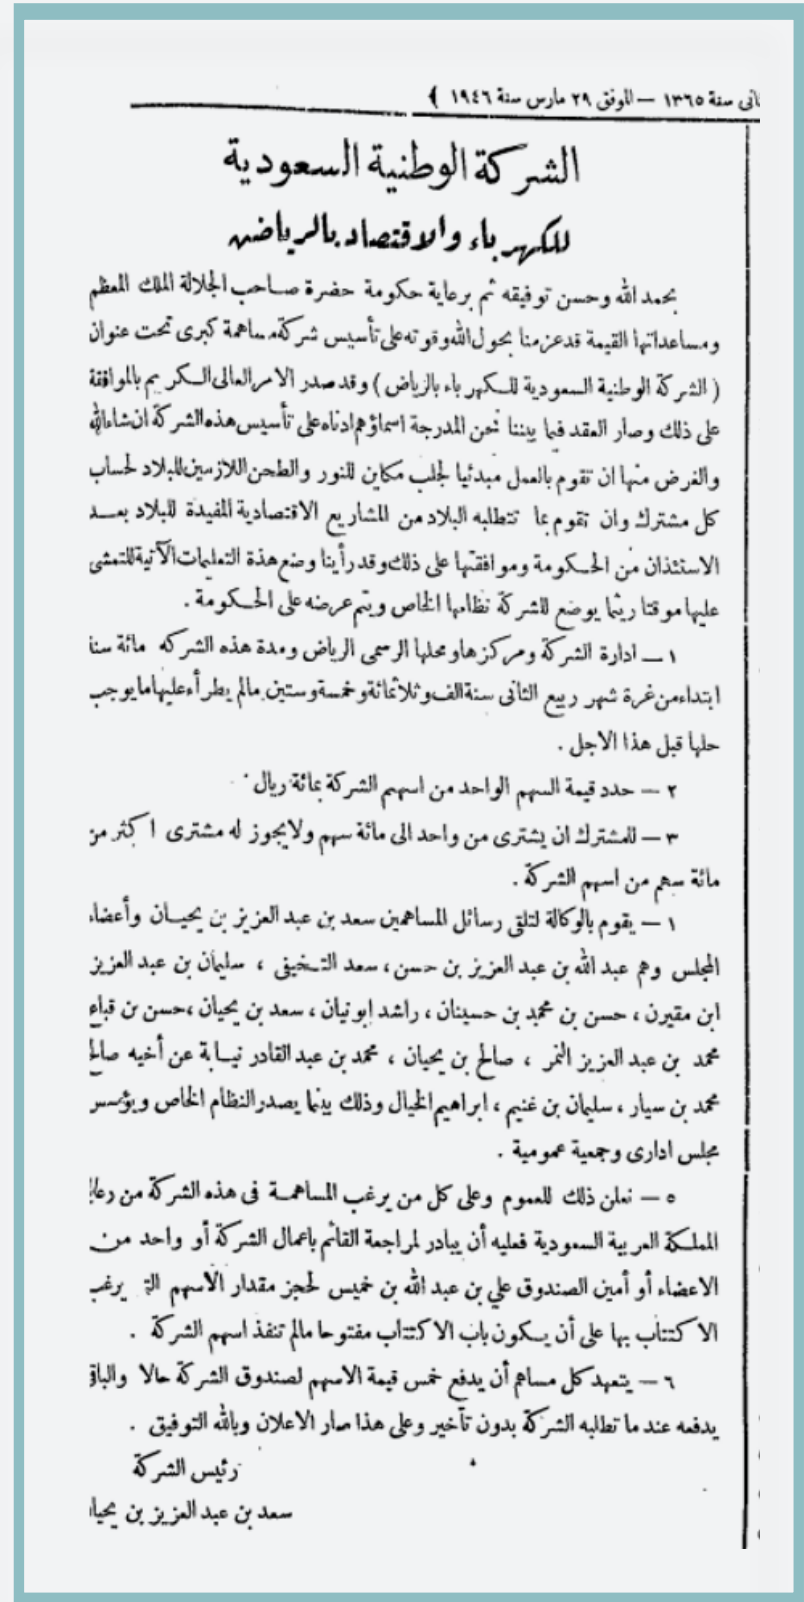 سنة ١٣٦٥ — الموفق ٢٩ مارس سنة ١٩٤٦ )
الشركة الوطنية السعودية
للكهرباء والاقتصاد بالرياض
بحمد الله وحسن توفيقه ثم برعاية حكومة حضرة صاحب الجلالة الملك المعظم
ومساعداتها القيمة قد عزمنا بحول الله وقوته على تأسيس شركة مساهمة كبرى تحت عنوان
( الشركة الوطنية السعودية للكهرباء بالرياض ) وقد صدر الامر العالى الكريم بالموافقة
على ذلك وصار العقد فيما بيننا نحن المدرجة اسماؤهم ادناه على تأسيس هذه الشركة ان شاء الله
والغرض منها ان تقوم بالعمل مبدئيا لجلب مكاين للنور والطحن اللازمين للبلاد لحساب
كل مشترك وان تقوم بما تتطلبه البلاد من المشاريع الاقتصادية المفيدة للبلاد بعد
الاستئذان من الحكومة وموافقتها على ذلك وقد رأينا وضع هذة التعليمات الآتية للتمشى
عليها موقتا ريثما يوضع للشركة نظامها الخاص ويتم عرضه على الحكومة .
١ — ادارة الشركة ومركزها ومحلها الرسمى الرياض ومدة هذه الشركه مائة
ابتداء من غرة شهر ربيع الثانى سنة الف وثلاثمائة وخمسة وستين مالم يطرأ عليها ما يوجب
حلها قبل هذا الاجل .
٢ — حدد قيمة السهم الواحد من اسهم الشركة بمائة ريال
٣ — للمشترك ان يشترى من واحد الى مائة سهم ولا يجوز له مشترى اكثر من
مائة سهم من اسهم الشركة .
١ — يقوم بالوكالة لتلقى رسائل المساهمين سعد بن عبد العزيز بن يحيان وأعضاء
المجلس وهم عبد الله بن عبد العزيز بن حسن ، سعد التخيفى ، سليمان بن عبد العزيز
ابن مقيرن ، حسن بن محمد بن حسينان ، راشد ابونيان ، سعد بن يحيان ، حسن بن قباع
محمد بن عبد العزيز النمر ، صالح بن يحيان ، محمد بن عبد القادر نيابة عن أخيه صالح
محمد بن سيار ، سليمان بن غنيم ، ابراهيم الخيال وذلك بينما يصدر النظام الخاص ويؤسس
مجلس ادارى وجمعية عمومية .
٥ — نعلن ذلك للعموم وعلى كل من يرغب المساهمة فى هذه الشركة من
المملكة العربية السعودية فعليه أن يبادر لمراجعة القائم باعمال الشركة أو واحد من
الاعضاء أو أمين الصندوق علي بن عبد الله بن خميس لحجز مقدار الاسهم يرغب
الاكتتاب بها على أن يكون باب الاكتتاب مفتوحا مالم تنفذ اسهم الشركة .
٦ — يتعهد كل مساهم أن يدفع خمس قيمة الاسهم لصندوق الشركة حالا والباقى
يدفعه عند ما تطلبه الشركة بدون تأخير وعلى هذا صار الاعلان وبالله التوفيق .
رئيس الشركة
سعد بن عبد العزيز بن يحيان